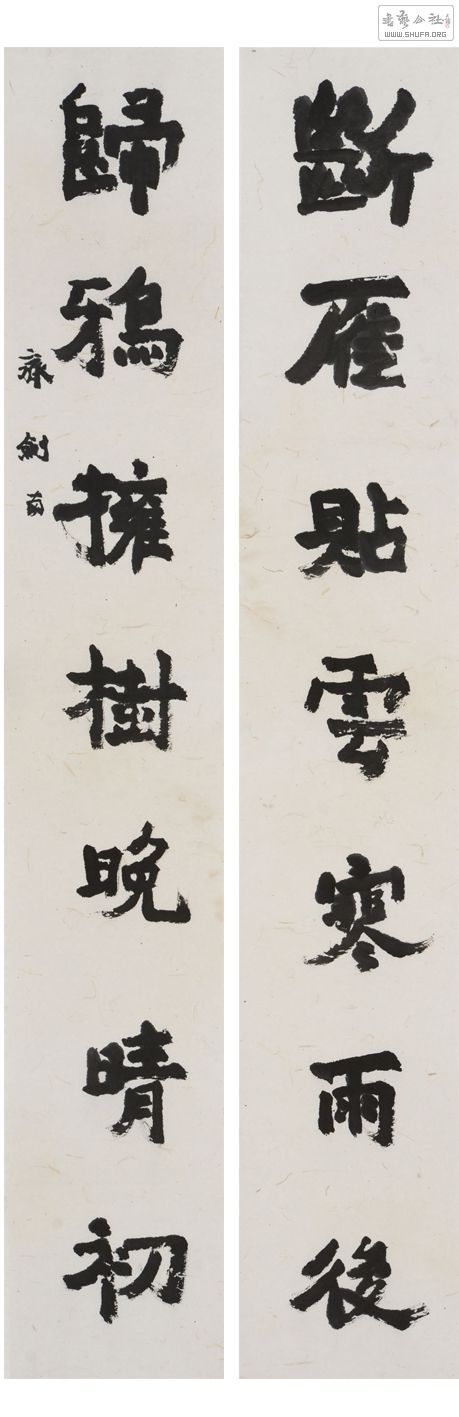 書藝公社
WWW.SHUFA.ORG
斷雁貼雲寒雨後
歸鴉擁樹晚晴初
齊劍南